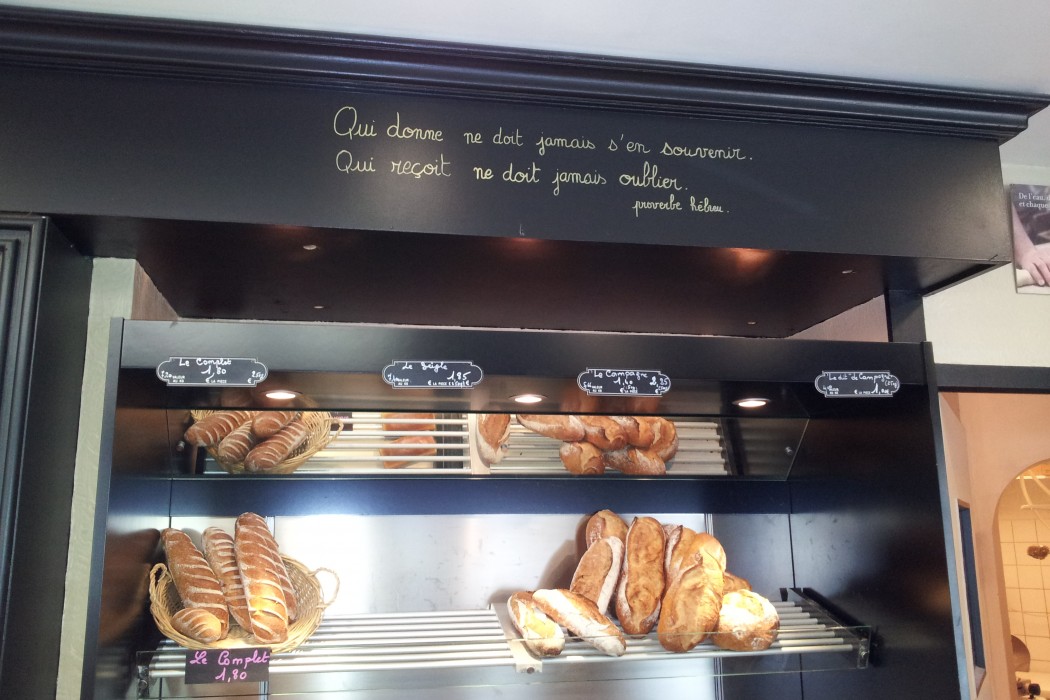 Qui donne ne doit jamais s'en souvenir.
Qui reçoit ne doit jamais oublier.
proverbe hébreu.
De l'eau, d
et chaque
Le Complet
1,80
€ LA PIECE
Le Seigle
1,85
€ LA PIECE
Le Campagne
1,40 2,25
€ LA PIECE
Le Complet
1,80